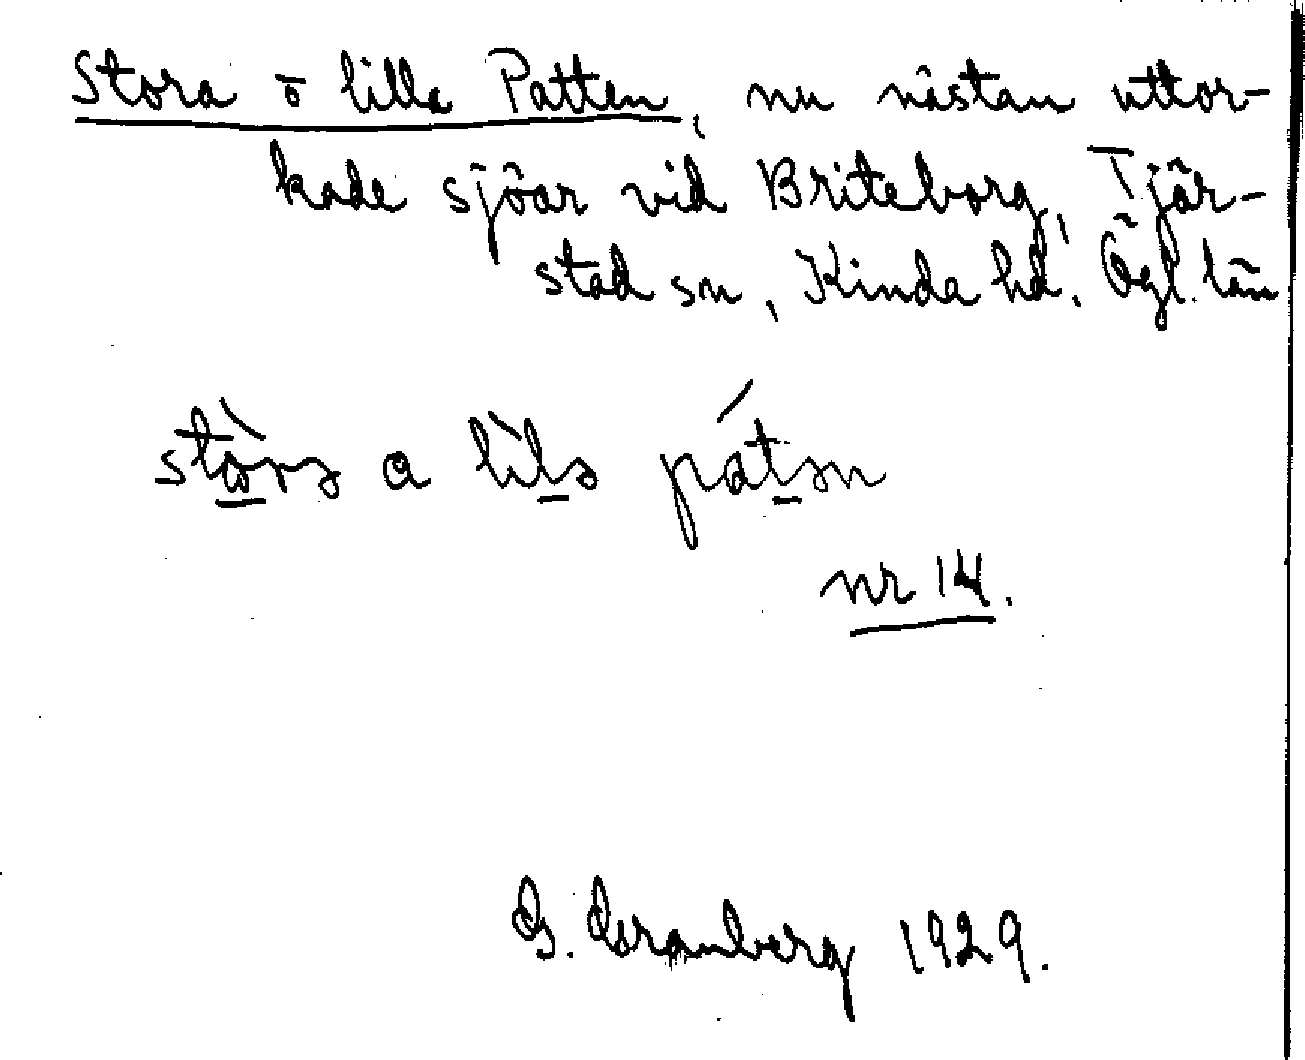 Stora o lilla Patten, nu nästan uttor-
kade sjöar vid Briteborg, Tjär-
stad sn, Kinda hd. Ögl. län
a
nr 14.
G. Granberg 1929.